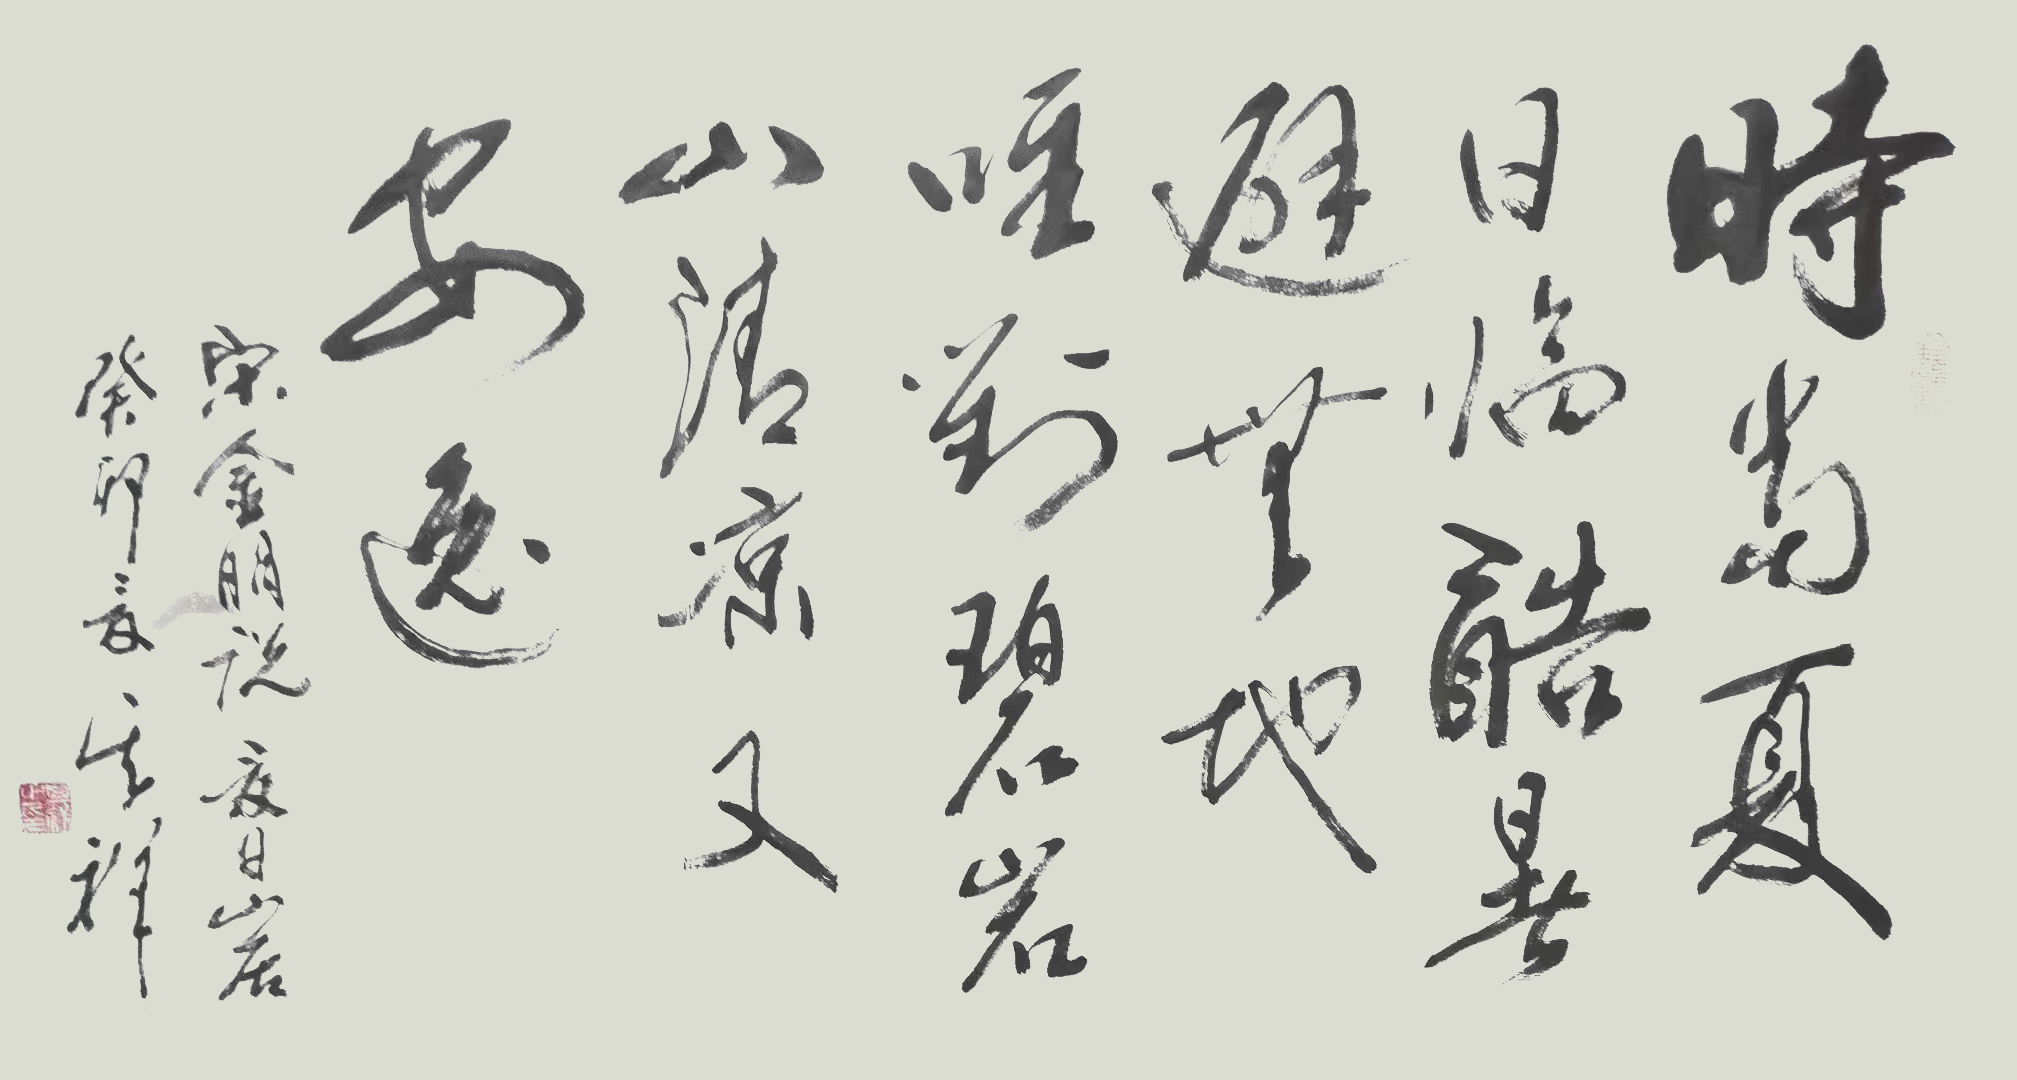 時當夏
日臨酷暑
避無地
唯對碧岩
山清凉又
安逸
宋金朋説夏日山居
癸卯夏祥